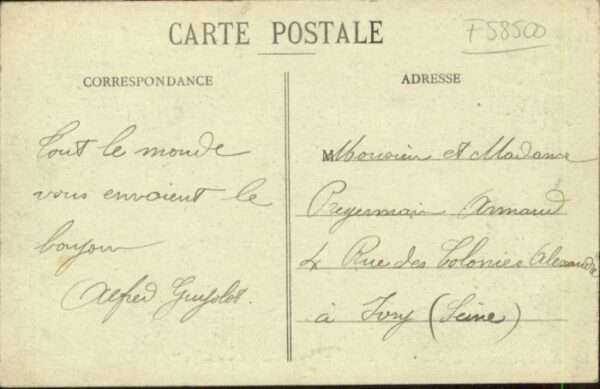 CARTE POSTALE
F58500
CORRESPONDANCE
ADRESSE
Tout le monde
vous envoient le
bonjour
Alfred
Monsieur et Madame
Armand
4 Rue des Colonies
à Ivry (Seine)